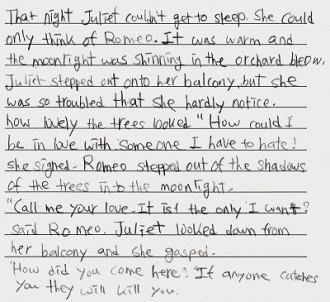 That night Juliet couldn't get to sleep. She could
only think of Romeo. It was warm and
the moonlight was shinning in the orchard blow.
Juliet stepped out onto her balcony, but she
was so troubled that she hardly notice.
how lovely the trees looked "How could I
be in love with someone I have to hate!
she signed. Romeo stepped out of the shadows
of the trees into the moonlight.
"Call me your love. It is the only I want?
said Romeo. Juliet looked down from
her balcony and she gasped.
'How did you come here? If anyone catches
you they will kill you.